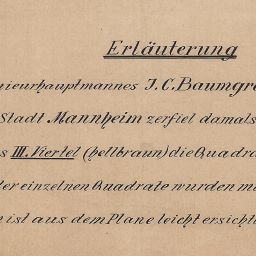 Erläuterung
nieurhauptmannes J.C.Baumgre
Stadt Mannheim zerfiel damals
s III. Viertel (hellbraun) die Quadra
der einzelnen Quadrate wurden me
n ist aus dem Plane leicht ersichtl